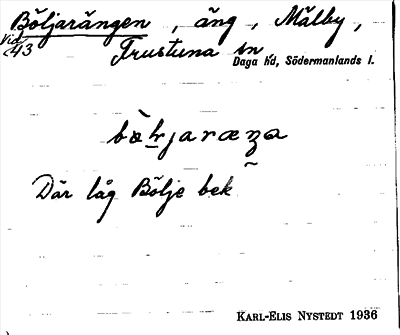 Böljarängen, äng, Målby,
Vid 43 Frustuna sn,
Daga hd, Södermanlands l.
Där låg Bölje bek
KARL-ELIS NYSTEDT 1936